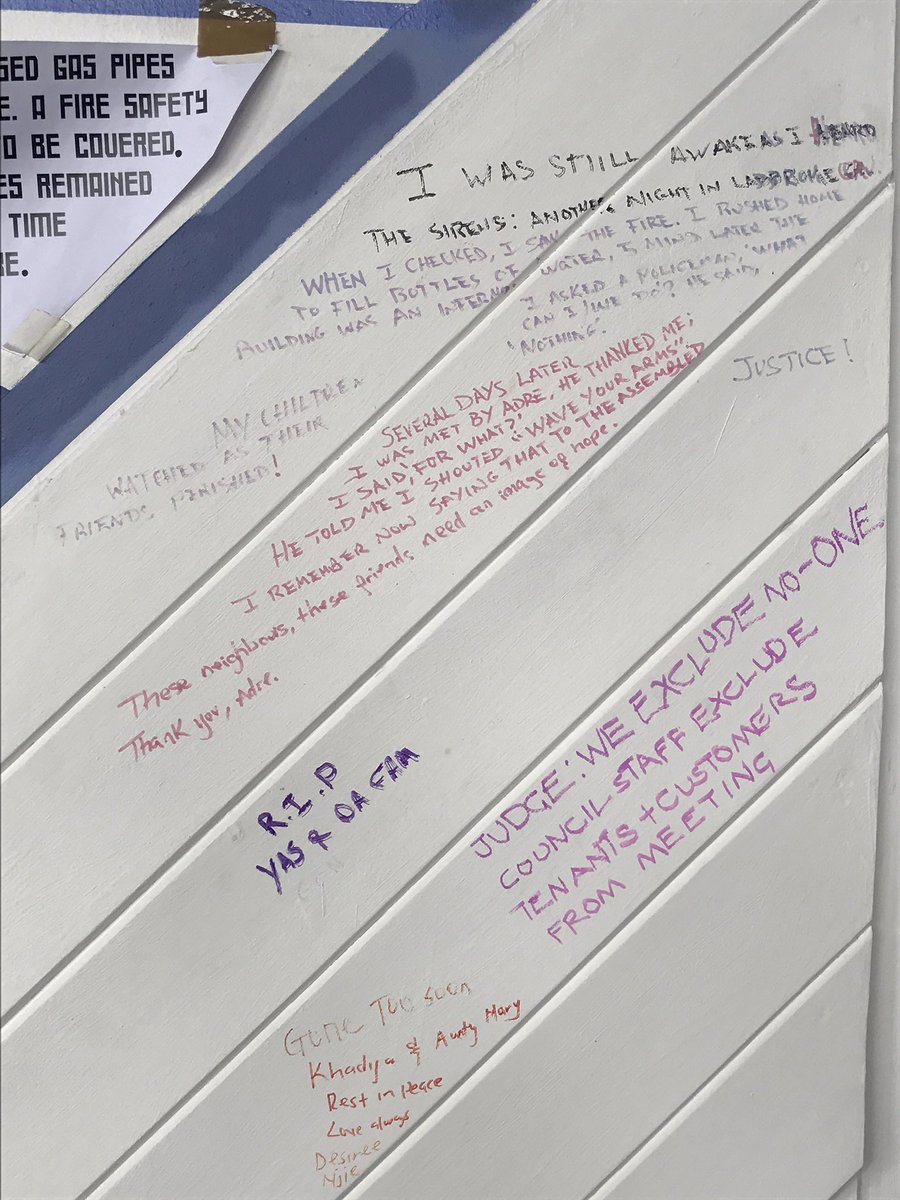 SED GAS PIPES
E. A FIRE SAFETY
O BE COVERED.
ES REMAINED
TIME
RE.
I WAS STIILL AWAKE AS I HEARD
THE SIRENS: ANOTHER NIGHT IN LADBROKE GRV.
WHEN I CHECKED, I SAW THE FIRE. I RUSHED HOME
TO FILL BOTTLES OF WATER, 5 MIND LATER THE
BUILDING WAS AN INTERNO
I ASKED A POLICEMAN, 'WHAT
CAN I/WE DO'? HE SAID,
'NOTHING'.
MY CHILTREN
WATCHED AS THEIR
FRIENDS PERISHED!
SEVERAL DAYS LATER
I WAS MET BY ADRE. HE THANKED ME;
I SAID, 'FOR WHAT?'
HE TOLD ME I SHOUTED "WAVE YOUR ARMS";
I REMEMBER NOW SAYING THAT TO THE ASSEMBLED
These neighbours, these friends need an image of hope.
Thank you, Adre.
JUSTICE!
R.I.P
YAS & DA FAM
JUDGE: WE EXCLUDE NO-ONE
COUNCIL STAFF EXCLUDE
TENANTS + CUSTOMERS
FROM MEETING
GONE TOO SOON
Khadija & Aunty Mary
Rest in Peace
Love always
Desiree
Njie